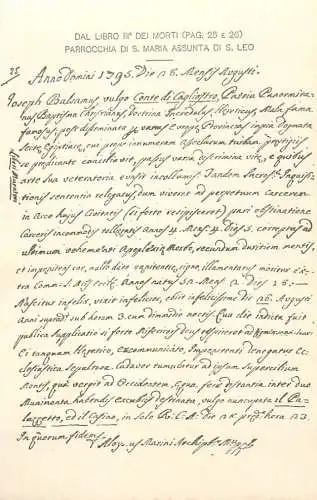 DAL LIBRO IIIº DEI MORTI (PAG. 25 E 26)
PARROCCHIA DI S. MARIA ASSUNTA DI S. LEO
25 Anno Domini 1795. Die 28. Mensis Augusti.
Joseph Balsamus, vulgo Conte di Cagliostro, Patria Panormita-
nus, Baptismo Christianus, Doctrina Incredulus, Hereticus, Mala fama
famosus, post disseminata per varias Europe Provincias impia dogmata
Secte Egiptiace, cui prope innumeram asseclarum turbam, prestigiis
se predicante conciliavit, passus varia discrimina vite, e quibus
arte sua veteratoria evasit incollumis: Tandem Sacre Inquisi-
tionis sententia relegatus, dum viveret ad perpetuam carcerem
in Arce hujus Civitatis (si forte resipisceret) pari obstinatione
Carceris incommodis tolleratis Annos 4. Menses 4. Dies 5. correptus ad
ultimum vehementi Apoplexie Morbo, secundum duritiem mentis,
et impenitens cor, nullo dato penitentie signo illamentatus moritur extra
Comm. S. Mis. Ecclie Annos natus 52 Mens 2 Dies 28.—
Nascitur infelix, vixit infelicior, obiit infelicissime die 26. Augusti
Anni supradti sub horam 3. cum dimidio noctis. Qua die indicta fuit
publica supplicatio si forte Misericors Deus respiceret ad
Ei tanquam Heretico, excommunicato, Impenitenti denegatur Ec-
clesiastica Sepultura. Cadaver tumulatur ad ipsum supercilium
Montis, qua vergit ad Occidentem, equa fere distantia inter duo
Munimenta habendis excubiis destinata, vulgo nuncupata il Pa-
lazzetto, ed il Casino, in Solo R. C. A. die 28 hora 23.
In quorum fidem
Aloysius Marini Archipr.